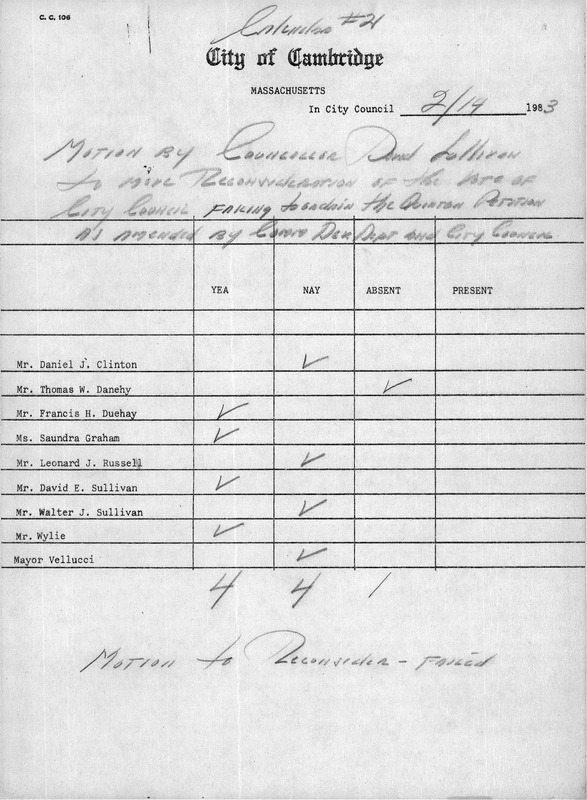 C. C. 106
Calendar #21
City of Cambridge
MASSACHUSETTS
In City Council 2/14 1983
Motion by Councillor David Sullivan
to move Reconsideration of the vote of
City Council, failing to ordain the Petition
as amended by Comm Dev Dept and City Council
YEA NAY ABSENT PRESENT
Mr. Daniel J. Clinton ✓
Mr. Thomas W. Danehy ✓
Mr. Francis H. Duehay ✓
Ms. Saundra Graham ✓
Mr. Leonard J. Russell ✓
Mr. David E. Sullivan ✓
Mr. Walter J. Sullivan ✓
Mr. Wylie ✓
Mayor Vellucci ✓
4 4 1
Motion to Reconsider - failed